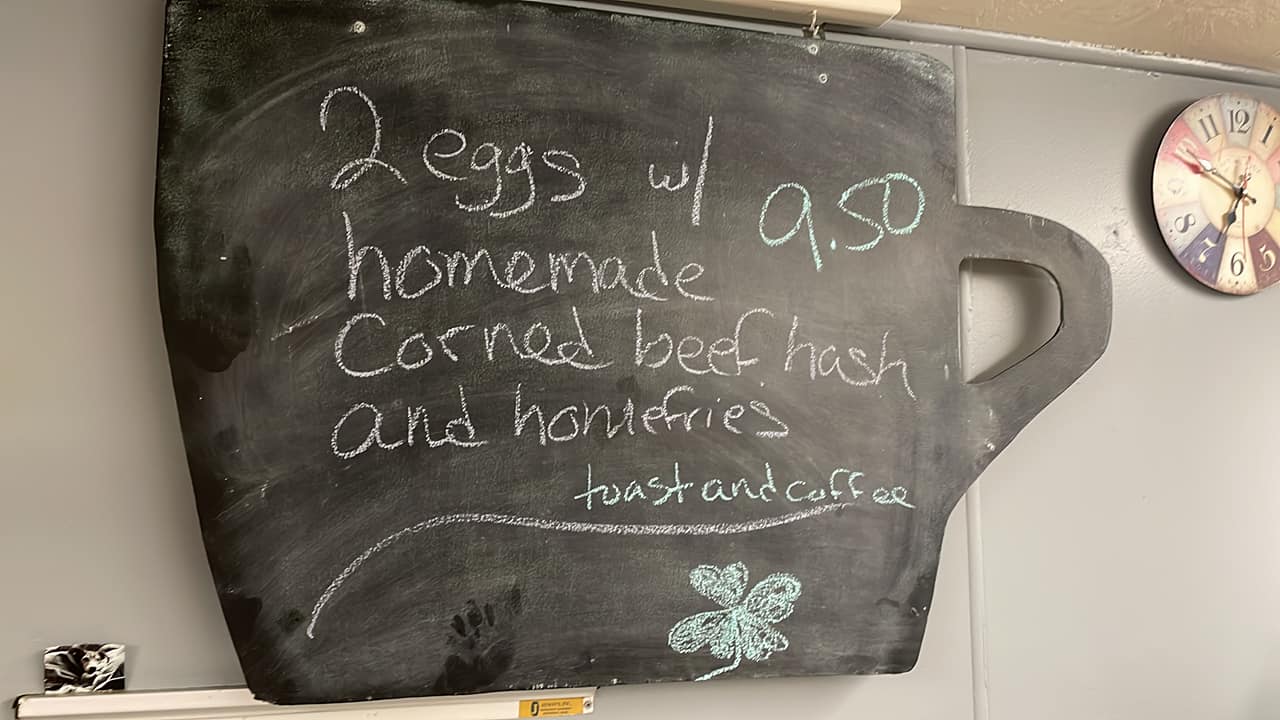 2 eggs w/ 9.50
homemade
Corned beef hash
and homefries
toast and coffee
11 12 1
8
7 6 5